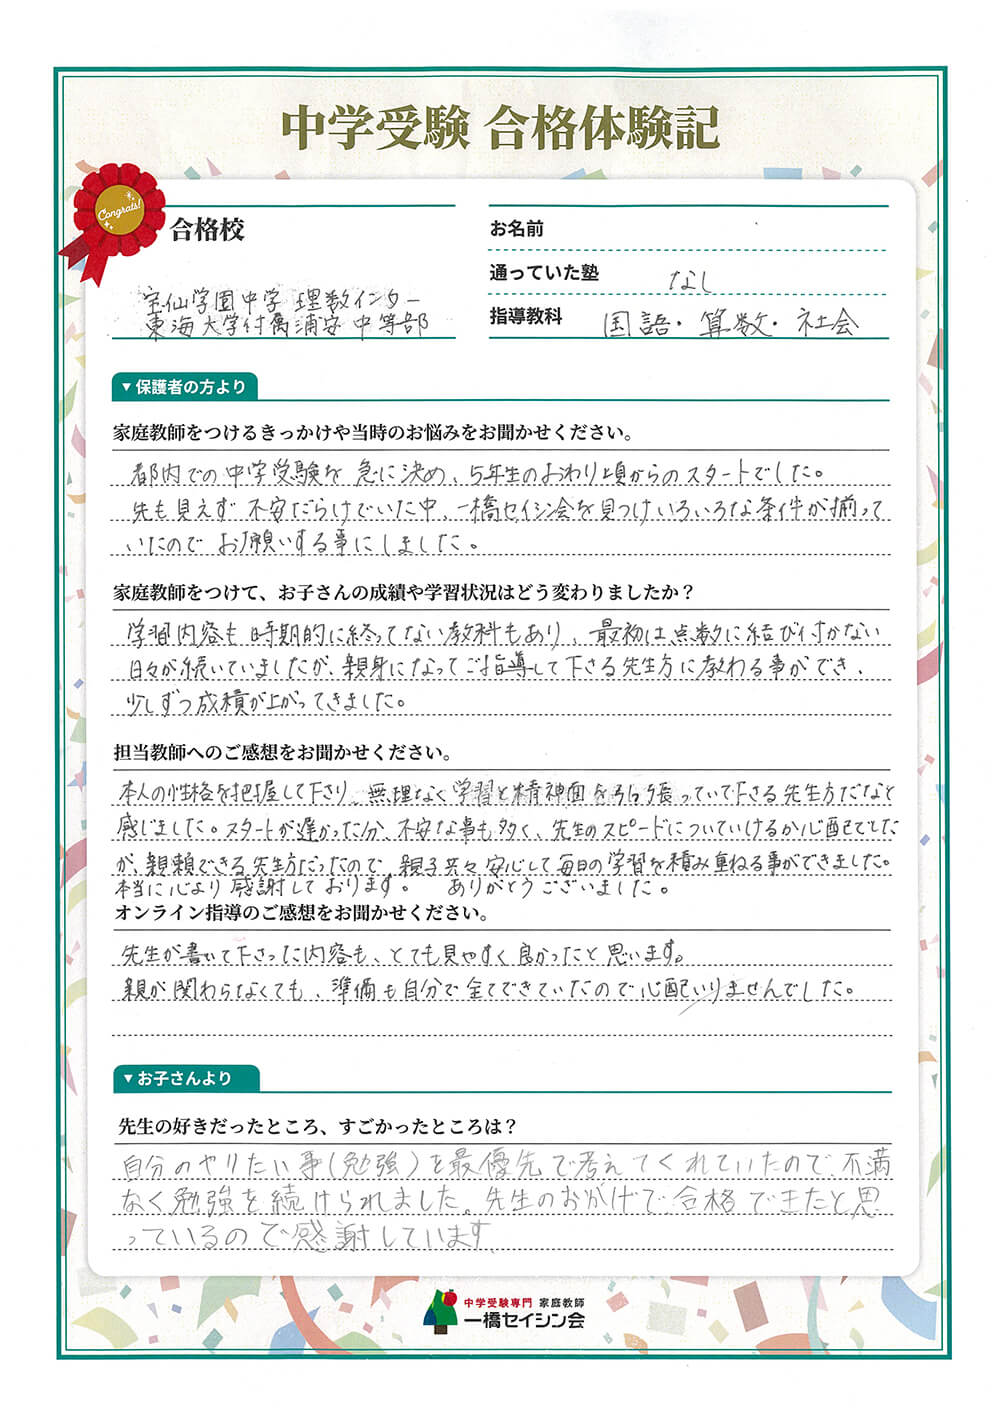 中学受験 合格体験記
Congrats!
合格校
宝仙学園中学 理数インター
東海大学付属浦安中等部
お名前
通っていた塾 なし
指導教科 国語・算数・社会
▼保護者の方より
家庭教師をつけるきっかけや当時のお悩みをお聞かせください。
都内での中学受験を急に決め、5年生のおわり頃からのスタートでした。
先も見えず不安だらけでいた中、一橋セイシン会を見つけいろいろな条件が揃って
いたのでお願いする事にしました。
家庭教師をつけて、お子さんの成績や学習状況はどう変わりましたか？
学習内容も時期的に終ってない教科もあり、最初は点数に結び付かない
日々が続いていましたが、親身になってご指導して下さる先生方に教わる事ができ、
少しずつ成積が上がってきました。
担当教師へのご感想をお聞かせください。
本人の性格を把握して下さり、無理なく学習と精神面を引っ張っていて下さる先生方だなと
感じました。スタートが遅かった分、不安な事も多く、先生のスピードについていけるか心配でした
が、親頼できる先生方だったので、親子共々安心して毎日の学習を積み重ねる事ができました。
本当に心より感謝しております。 ありがとうございました。
オンライン指導のご感想をお聞かせください。
先生が書いて下さった内容も、とても見やすく良かったと思います。
親が関わらなくても、準備も自分で全てできていたので心配いりませんでした。
▼お子さんより
先生の好きだったところ、すごかったところは？
自分のやりたい事(勉強)を最優先で考えてくれていたので、不満
なく勉強を続けられました。先生のおかげで合格できたと思
っているので感謝しています。
中学受験専門 家庭教師
一橋セイシン会